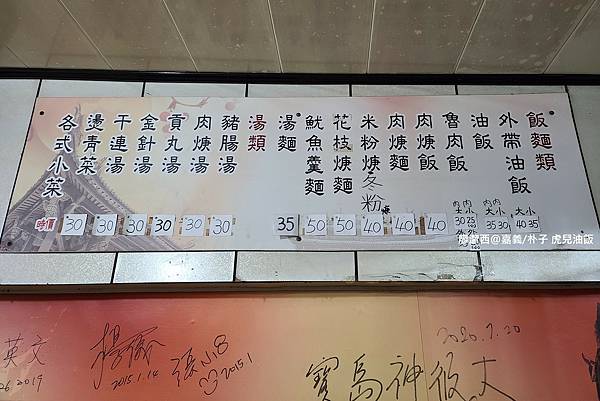 飯麵類
外帶油飯 大 小 40 35
油飯 內大 內小 35 30
魯肉飯 內大 內小
肉焿飯 40
肉焿麵 40
米粉焿冬粉焿 40
花枝焿麵 50
魷魚羹麵 50
湯麵 35
湯類
豬腸湯 30
肉焿湯 30
貢丸湯 30
金針湯 30
干連湯 30
燙青菜 30
各式小菜 時價
@嘉義/朴子 虎兒油飯
英文
2019
楊
2015.1.14
張小
2015.1
2020.7.20
寶島神很大